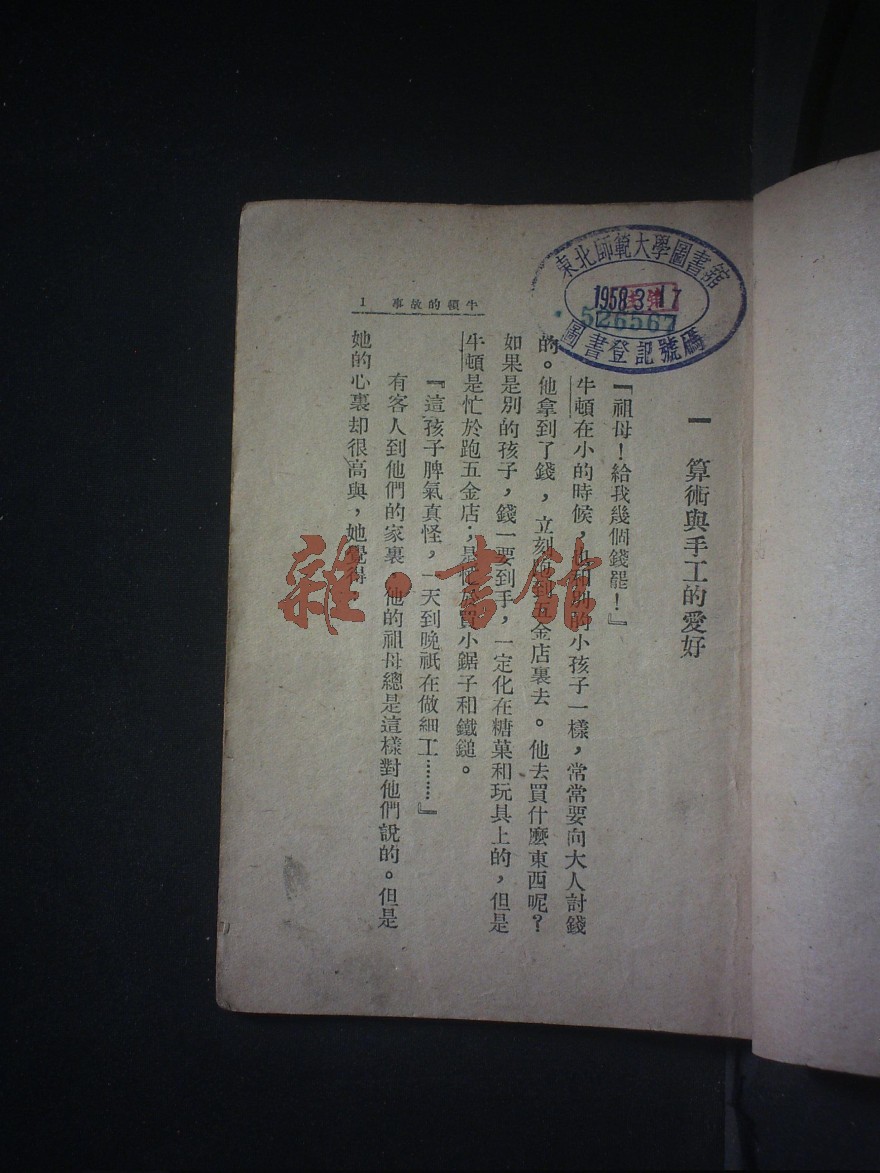 東北師範大學圖書館
1958.3.17
526567
圖書登記號碼
一 算術與手工的愛好
『祖母！給我幾個錢罷！』
牛頓在小的時候，也和別的小孩子一樣，常常要向大人討錢
的。他拿到了錢，立刻跑到五金店裏去。他去買什麼東西呢？
如果是別的孩子，錢一要到手，一定化在糖菓和玩具上的，但是
牛頓是忙於跑五金店；是忙於買小鋸子和鐵鎚。
『這孩子脾氣真怪，一天到晚祇在做細工………』
有客人到他們的家裏，他的祖母總是這樣對他們說的。但是
她的心裏却很高興，她覺得
牛頓的故事 1
雜·書館